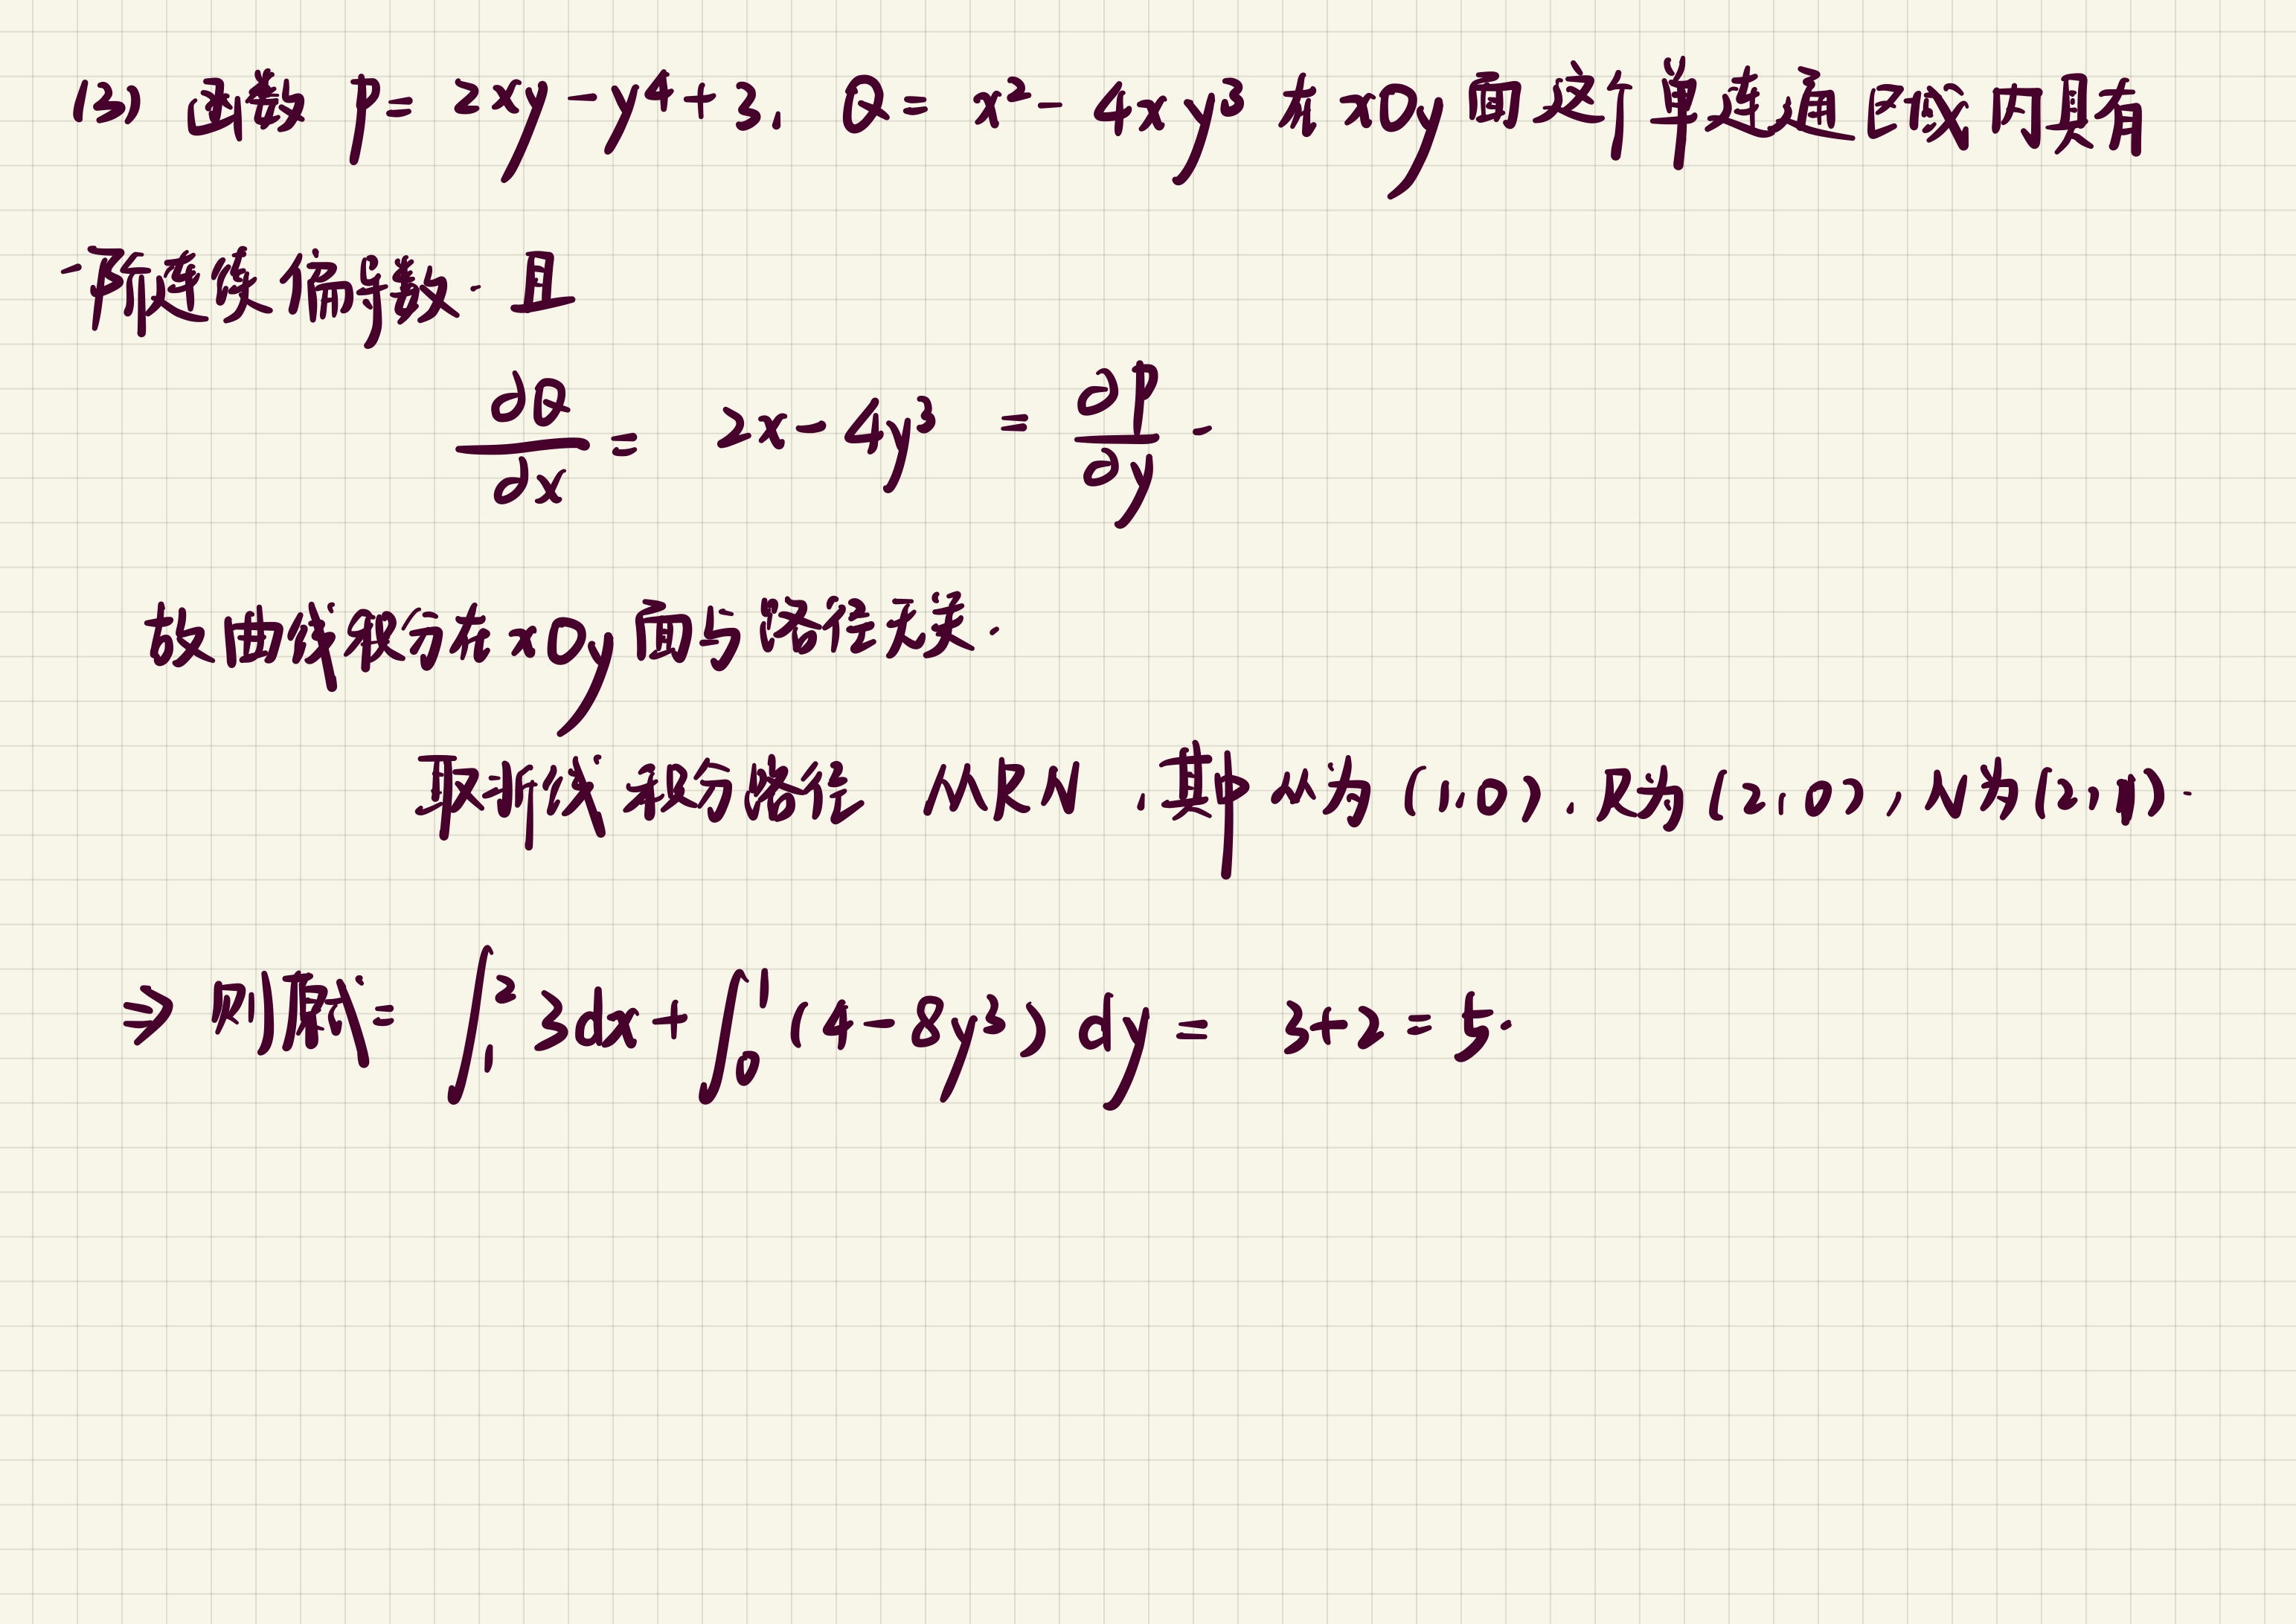 (3) 函数 P = 2xy - y⁴ + 3, Q = x² - 4xy³ 在 xOy 面这个单连通区域内具有
一阶连续偏导数. 且
∂Q/∂x = 2x - 4y³ = ∂P/∂y.
故曲线积分在 xOy 面与路径无关.
取折线积分路径 MRN, 其中 M为 (1,0), R为 (2,0), N为 (2,1).
⇒ 则原式 = ∫₁² 3dx + ∫₀¹ (4 - 8y³) dy = 3+2 = 5.